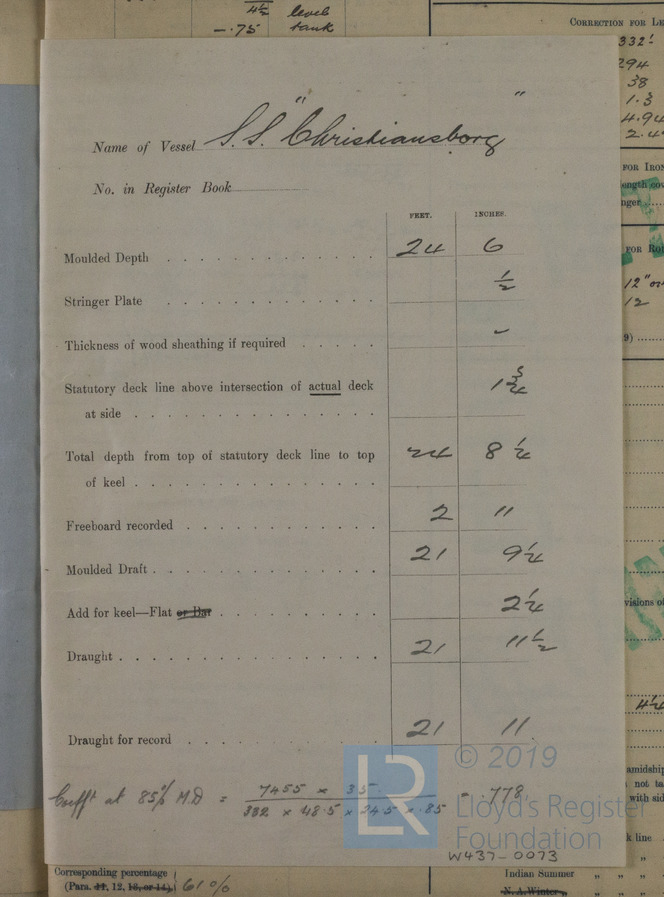 4½ level
-.75 tank
CORRECTION FOR LE
332'
294
38
1.3
4.94
2.4
"   "
Name of Vessel S.S. "Christiansborg
No. in Register Book
FEET. INCHES.
Moulded Depth 24 6
Stringer Plate ½
Thickness of wood sheathing if required -
Statutory deck line above intersection of actual deck 1¾
at side
Total depth from top of statutory deck line to top 24 8¼
of keel
Freeboard recorded 2 11
Moulded Draft 21 9¼
Add for keel—Flat or Bar 2¼
Draught 21 11½
Draught for record 21 11
Coefft at 85% M.D = 7455 x 35 = .778
332 x 48.5 x 24.5 x .85
© 2019
LR Lloyd's Register
Foundation
W437-0073
FOR IRON
ength cov
nger
FOR ROU
12" or
12
9)
visions of
4½
amidship
not ta
with sid
k line
"
Corresponding percentage
(Para. 11, 12, 13, or 14) 61%
Indian Summer " " "
N. A. Winter " " "